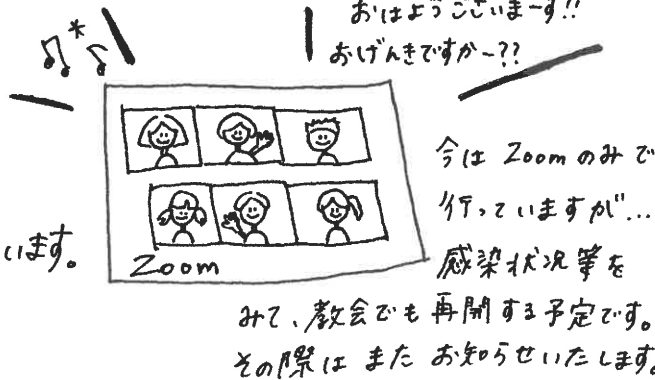 おはようございまーす!!
おげんきですか〜??
今は Zoomのみで
行っていますが...
感染状況等を
みて、教会でも再開する予定です。
その際は また お知らせいたします。
います。
Zoom